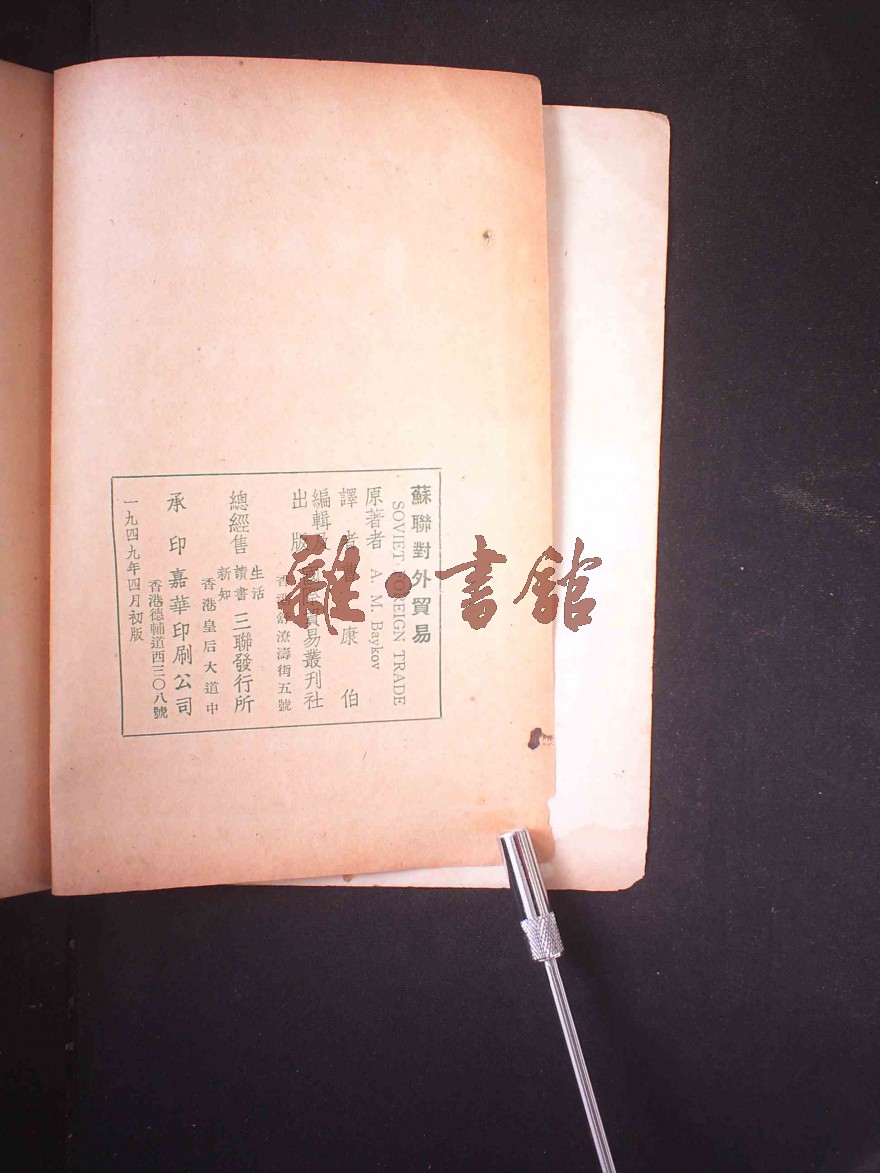 蘇聯對外貿易
SOVIET FOREIGN TRADE
原著者 A. M. Baykov
譯者 康伯
編輯及出版 貿易叢刊社
香港 潦濤街五號
總經售 生活 讀書 新知 三聯發行所
香港皇后大道中
承印 嘉華印刷公司
香港德輔道西三〇八號
一九四九年四月初版
雜·書館